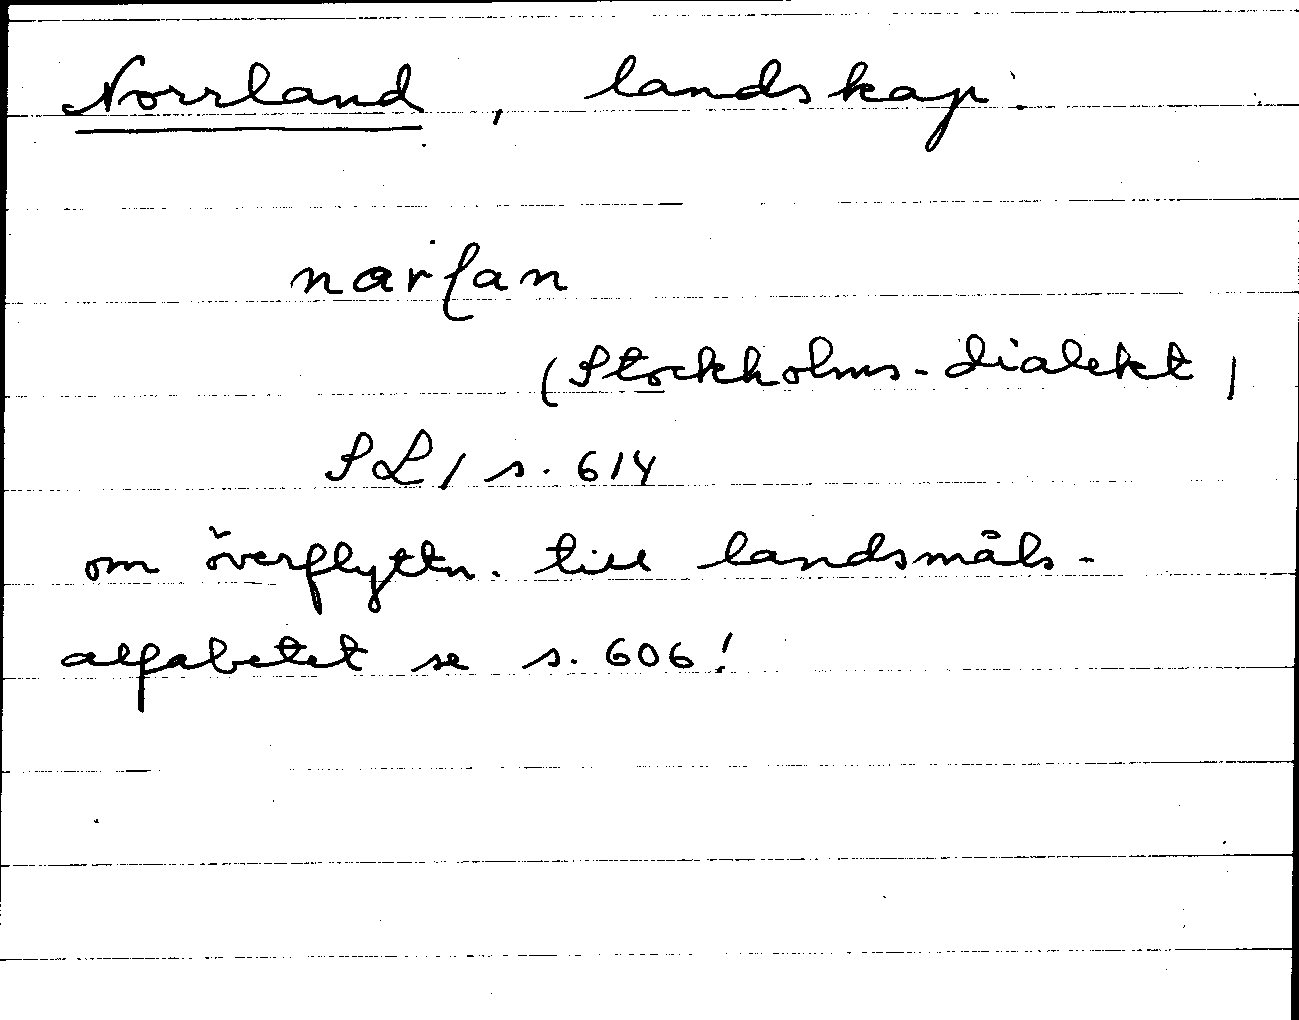 Norrland, landskap.
narlan
(Stockholms-dialekt)
SL 1 s. 614
om överflyttn. till landsmåls-
alfabetet se s. 606!